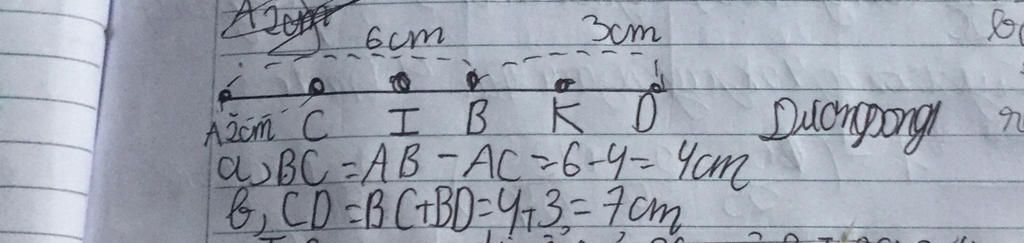 6cm 3cm
A 2cm C I B K D
a, BC = AB - AC = 6 - 4 = 4cm
b, CD = BC + BD = 4 + 3, = 7cm